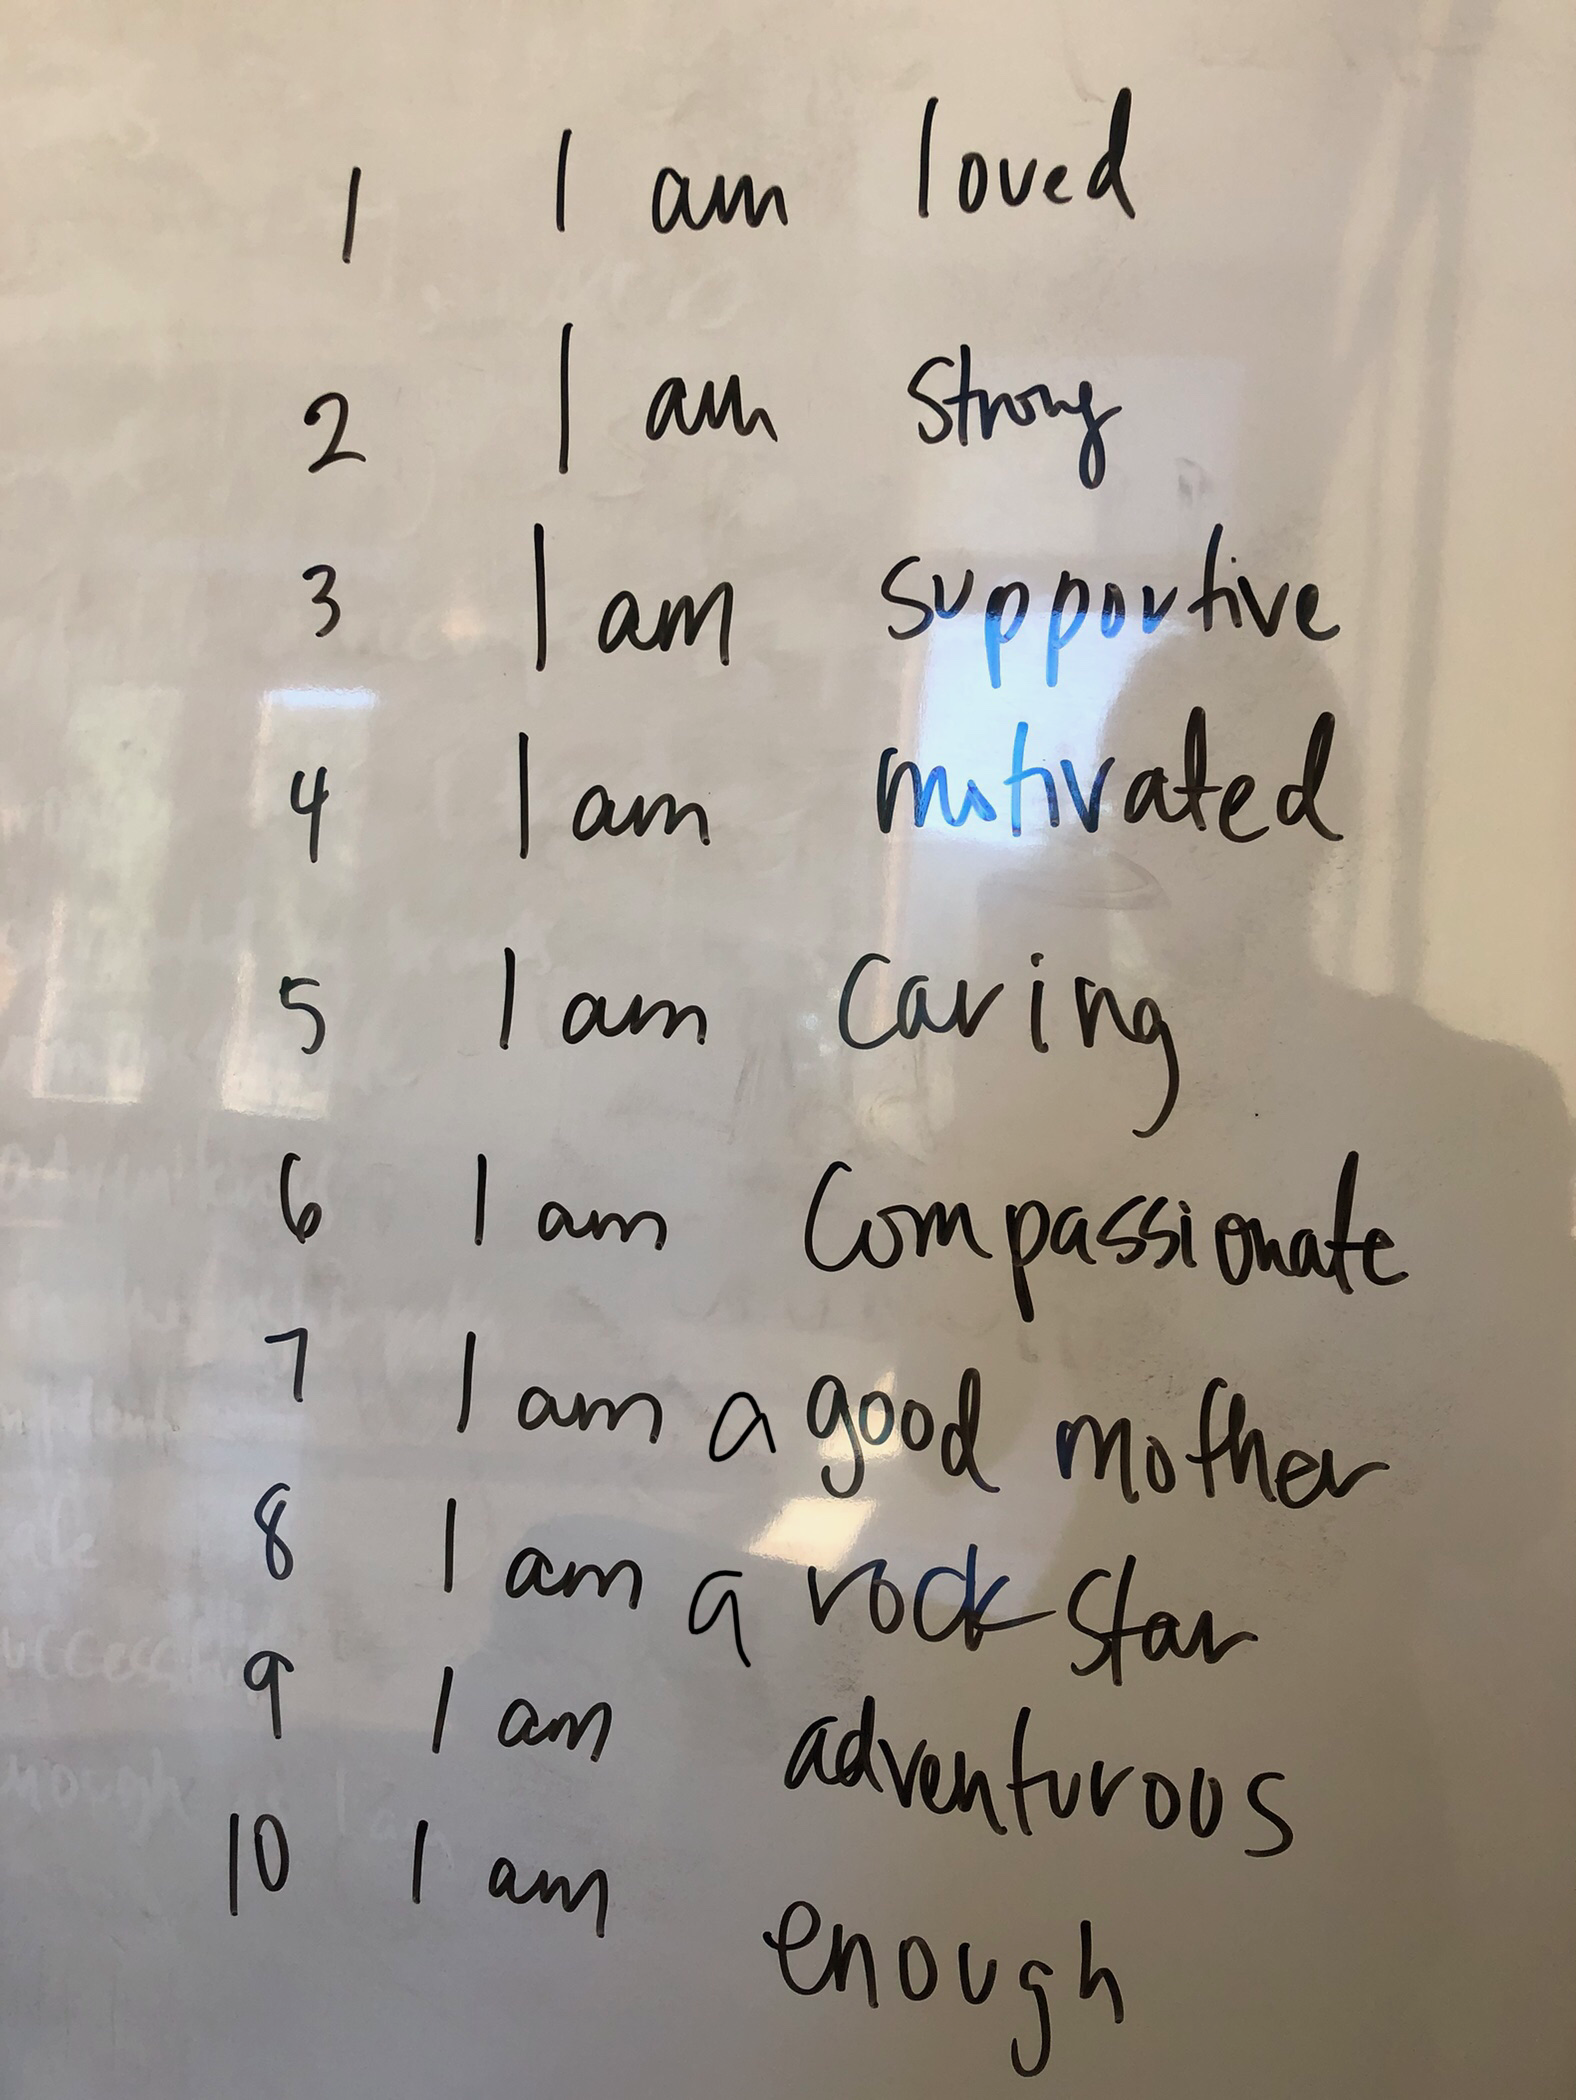 1 I am loved
2 I am strong
3 I am supportive
4 I am motivated
5 I am caring
6 I am compassionate
7 I am a good mother
8 I am a rock star
9 I am adventurous
10 I am enough